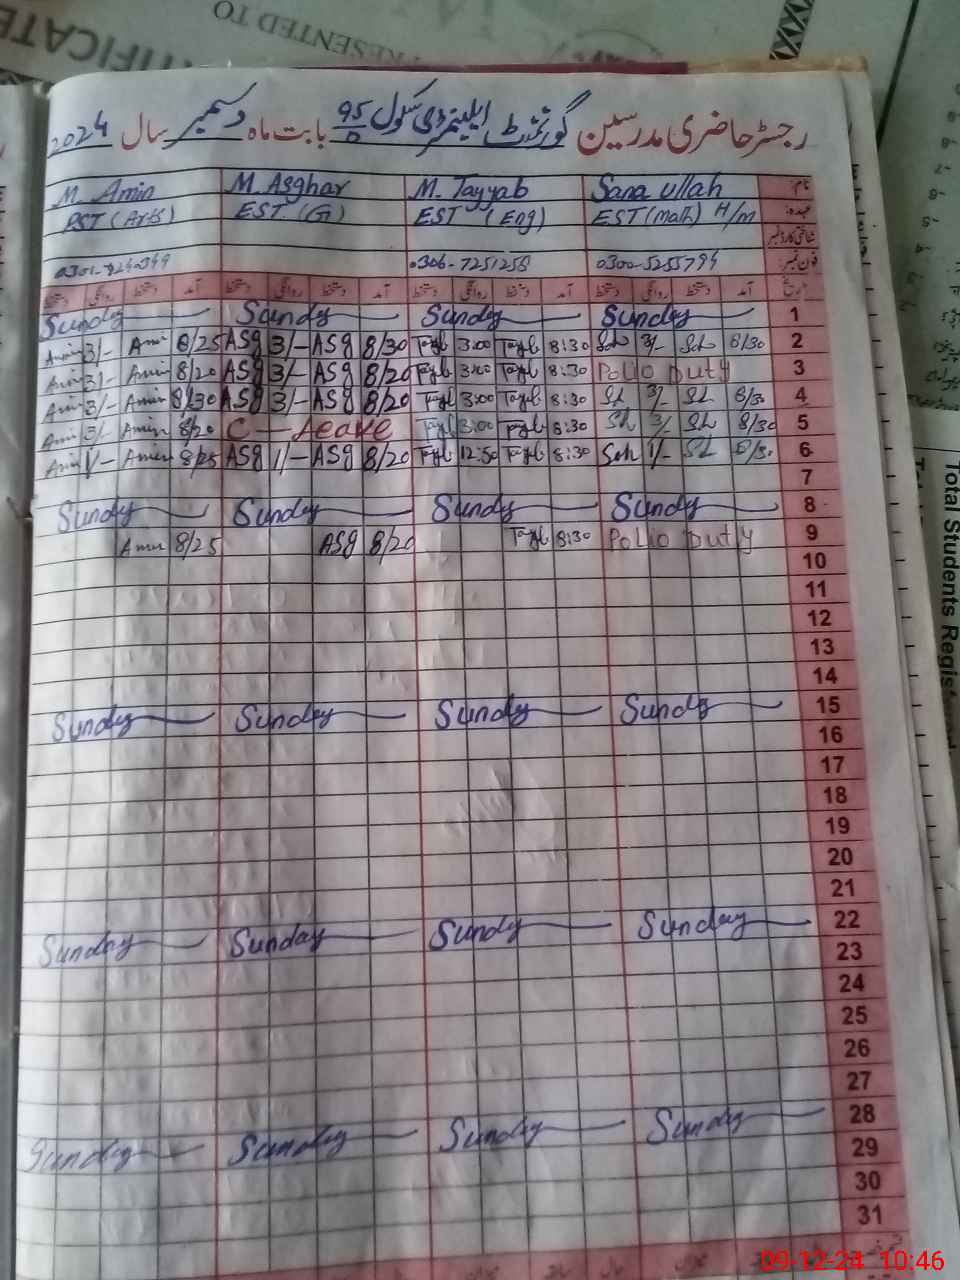 CERTIFICATE
PRESENTED TO
رجسٹر حاضری مدرسین گورنمنٹ ایلیمنٹری سکول 95/D بابت ماہ دسمبر سال 2024
نام: Sana ullah M. Tayyab M. Asghar M. Amin
عہدہ: EST (math) H/m EST (Eng) EST (G) PST (Arts)
شناختی کارڈ نمبر
فون نمبر: 0300-5255794 0306-7251258
تاریخ آمد دستخط روانگی دستخط آمد دستخط روانگی دستخط آمد دستخط روانگی دستخط آمد دستخط روانگی دستخط
1 Sunday Sunday Sunday Sunday
2 8/30 Sh 3/- Sh 8:30 Tayyb 3:00 Tayyb 8/30 ASg 3/- ASg 8/25 Amin 3/- Amin
3 Polio Duty 8:30 Tayyb 3:00 Tayyb 8/20 ASg 3/- ASg 8/20 Amin 3/- Amin
4 8/30 Sh 3/- Sh 8:30 Tayyb 3:00 Tayyb 8/20 ASg 3/- ASg 8/30 Amin 3/- Amin
5 8/30 Sh 3/- Sh 8:30 Tayyb 3:00 Tayyb C - Leave 8/20 Amin 3/- Amin
6 8/30 Sh 1/- Sh 8:30 Tayyb 12:50 Tayyb 8/20 ASg 1/- ASg 8/25 Amin 1/- Amin
7
8 Sunday Sunday Sunday Sunday
9 Polio Duty 8:30 Tayyb 8/20 ASg 8/25 Amin
10
11
12
13
14
15 Sunday Sunday Sunday Sunday
16
17
18
19
20
21
22 Sunday Sunday Sunday Sunday
23
24
25
26
27
28
29 Sunday Sunday Sunday Sunday
30
31
Total Students Regis
09-12-24 10:46